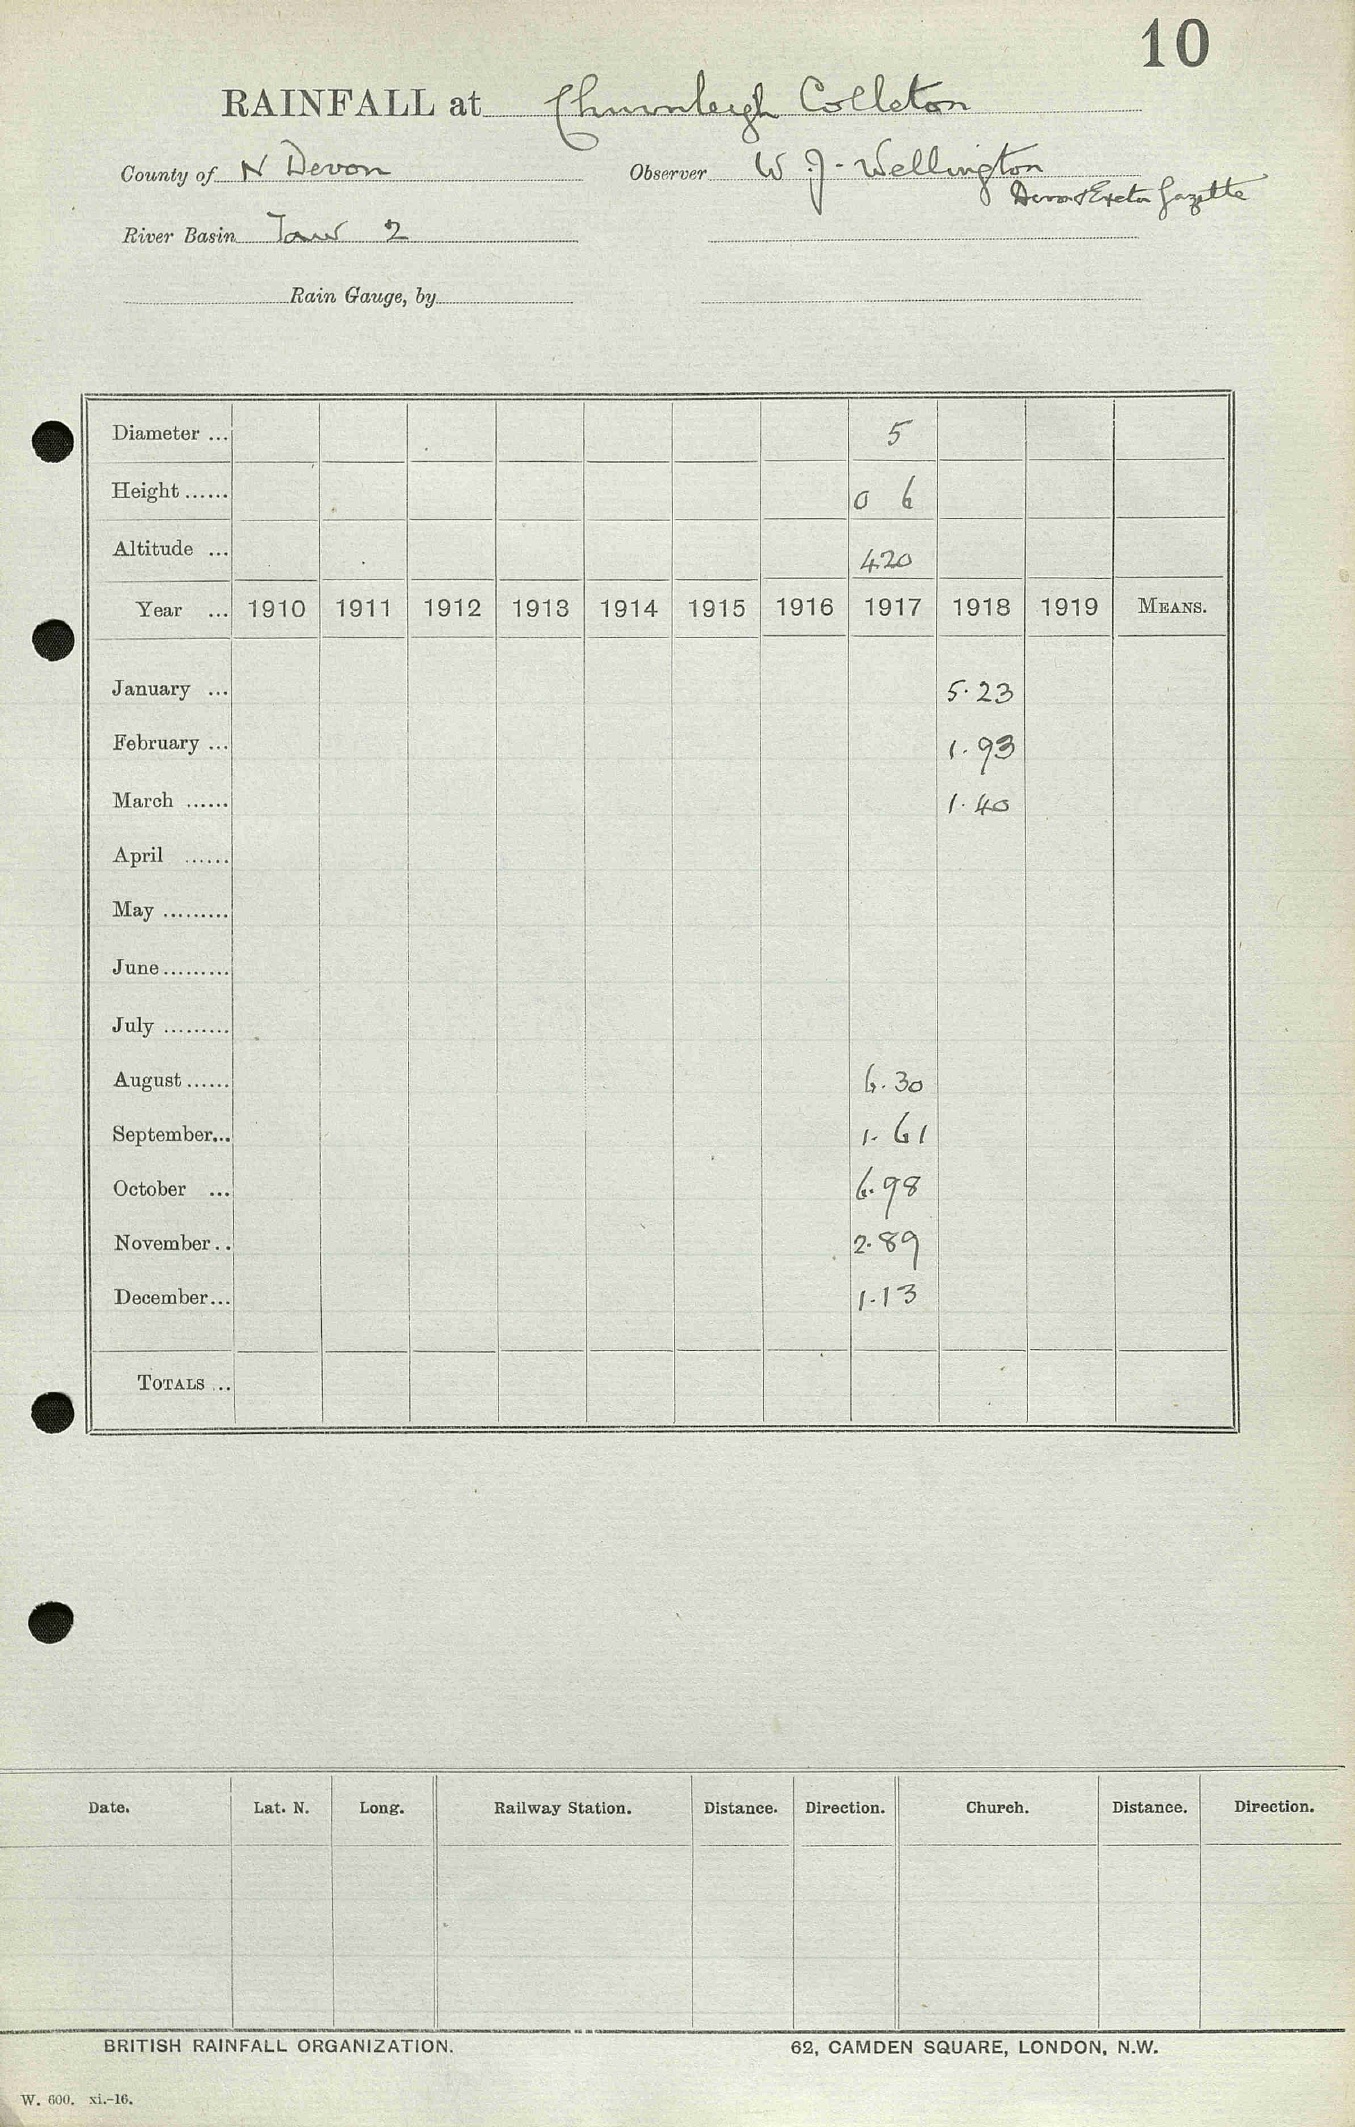 10
RAINFALL at Chumleigh Colleton
County of N Devon Observer W J - Wellington
Devon & Exeter Gazette
River Basin Taw 2
Rain Gauge, by
Diameter ... 5
Height ...... 0 6
Altitude ... 420
Year ... 1910 1911 1912 1913 1914 1915 1916 1917 1918 1919 MEANS.
January ... 5.23
February ... 1.93
March ...... 1.40
April ......
May .........
June.........
July .........
August...... 6.30
September... 1.61
October ... 6.98
November.. 2.89
December... 1.13
TOTALS ...
Date. Lat. N. Long. Railway Station. Distance. Direction. Church. Distance. Direction.
BRITISH RAINFALL ORGANIZATION. 62, CAMDEN SQUARE, LONDON, N.W.
W. 600. xi.-16.